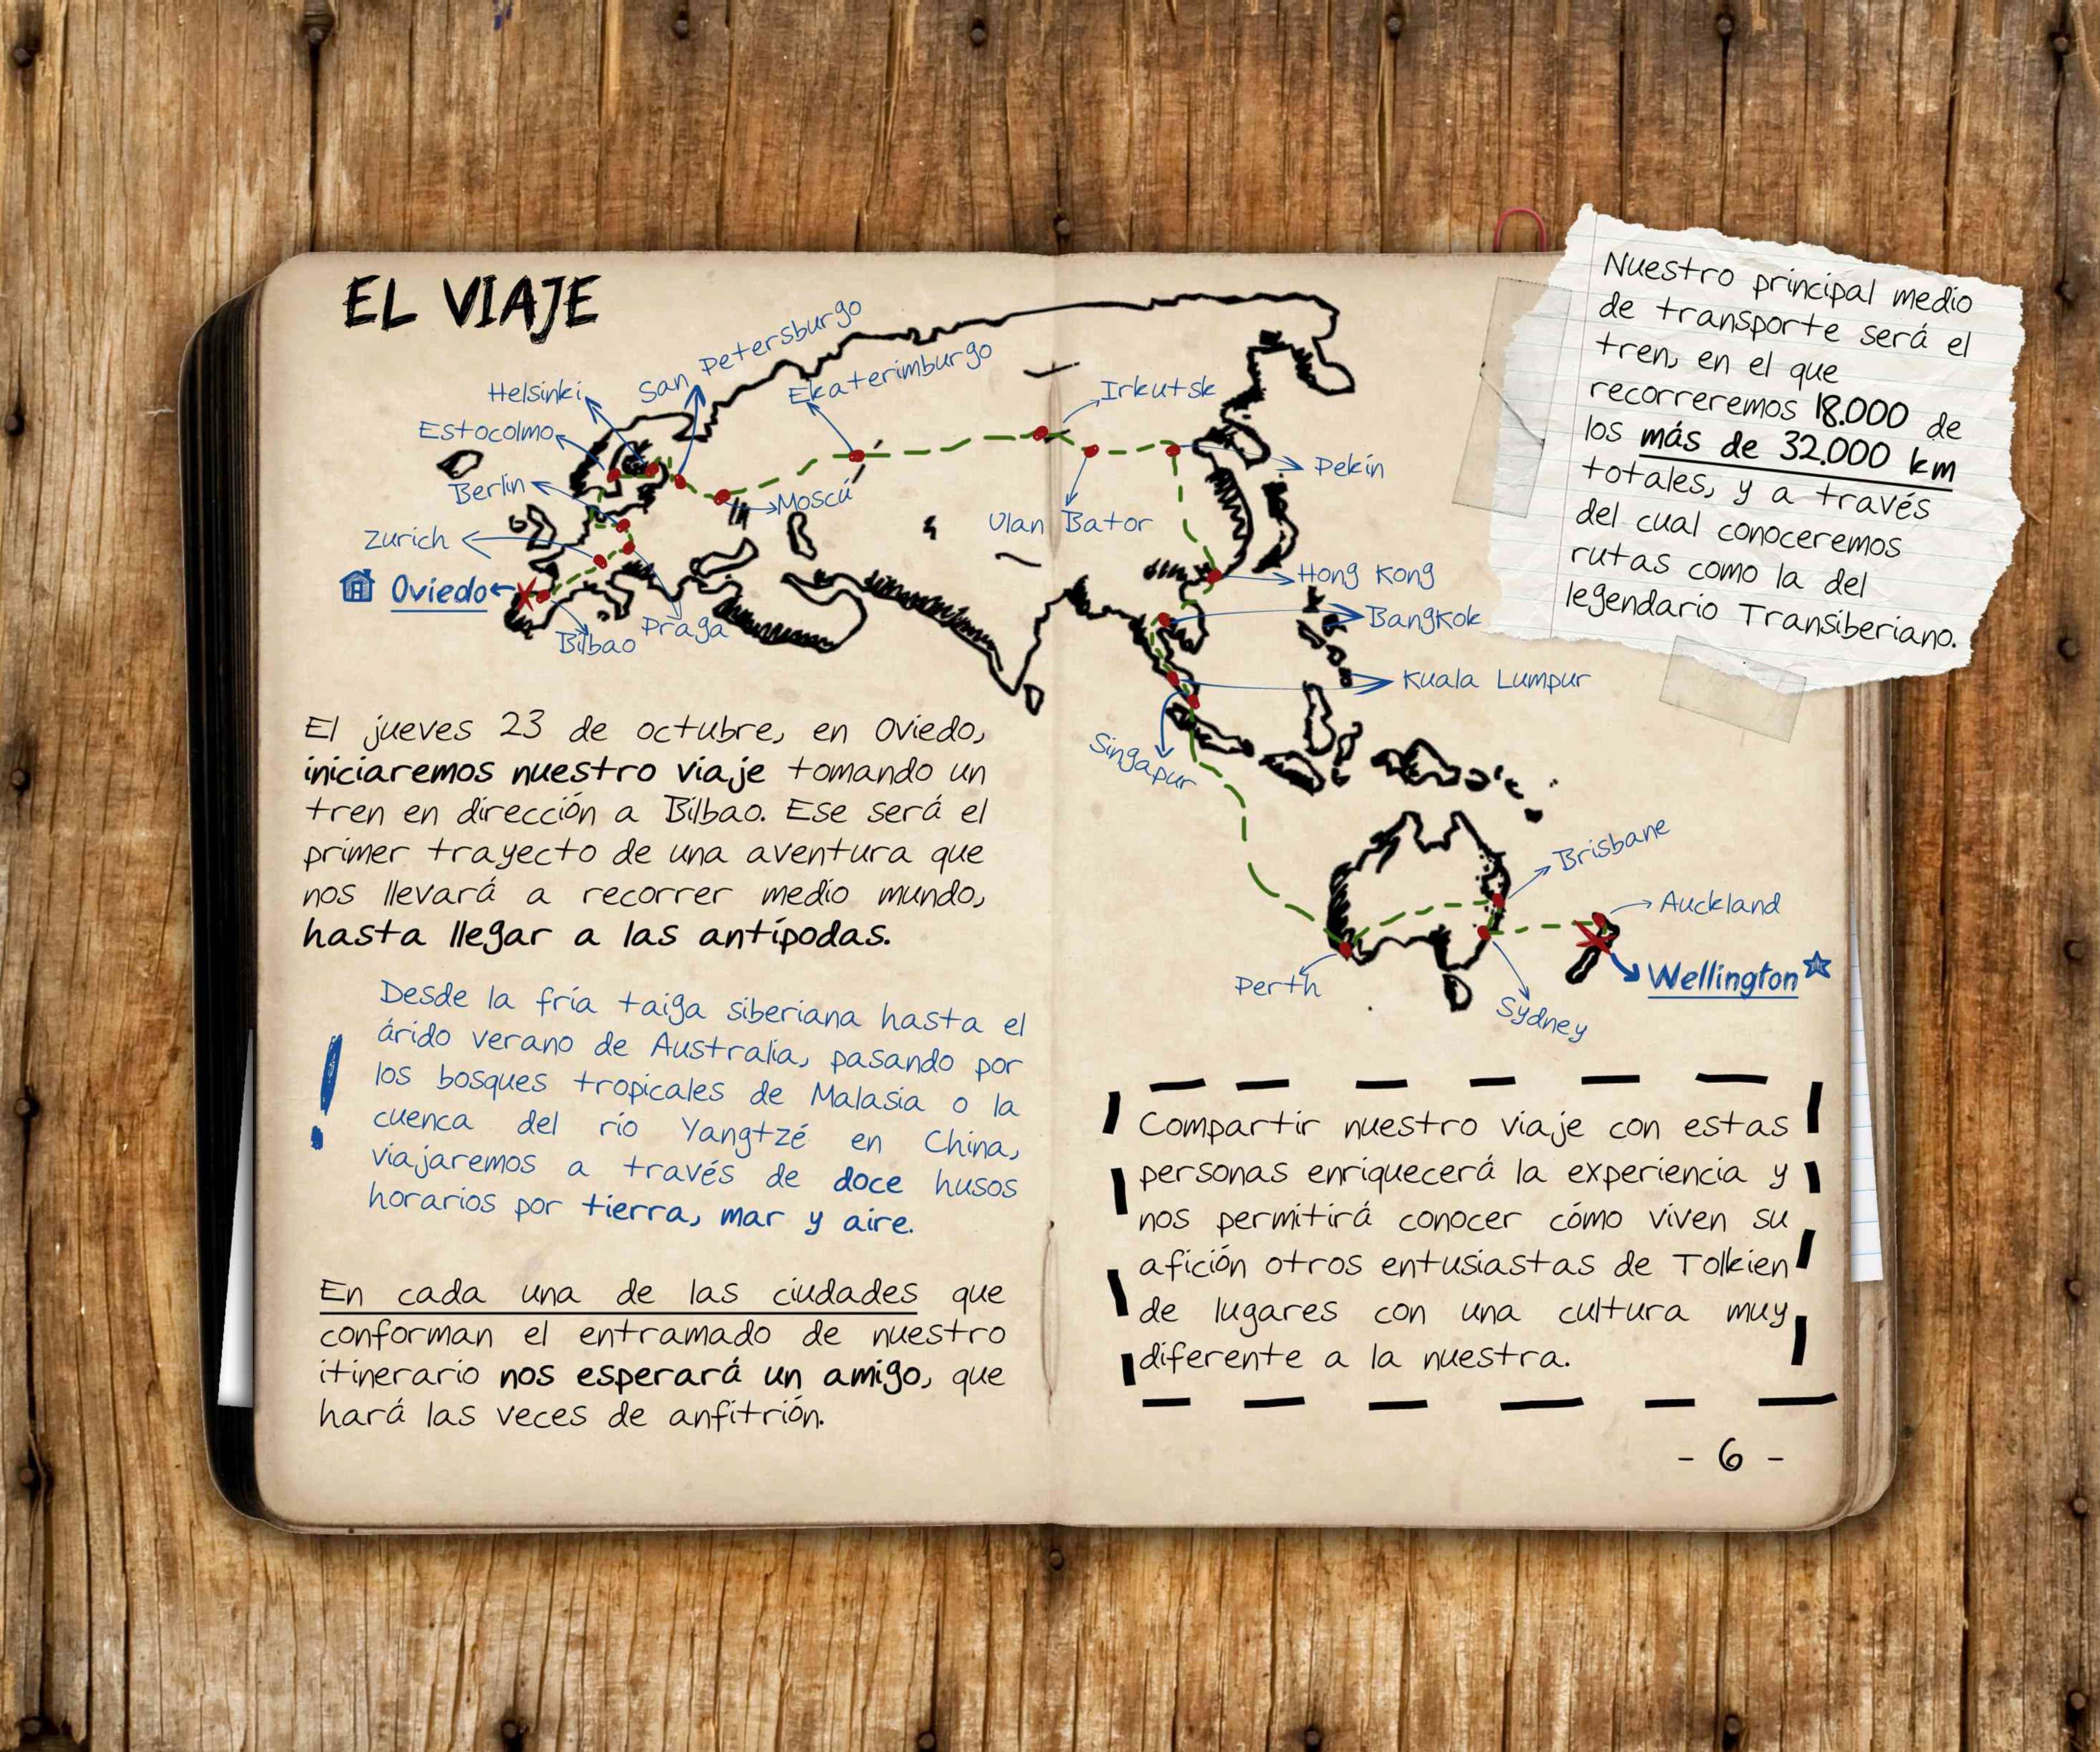 EL VIAJE
San Petersburgo
Ekaterimburgo
Helsinki
Irkutsk
Estocolmo
Pekín
Berlín
Moscú
Ulan Bator
Zurich
Hong Kong
Oviedo
Bangkok
Praga
Bilbao
Kuala Lumpur
Singapur
Brisbane
Auckland
Wellington
Perth
Sydney
Nuestro principal medio
de transporte será el
tren, en el que
recorreremos 18.000 de
los más de 32.000 km
totales, y a través
del cual conoceremos
rutas como la del
legendario Transiberiano.
El jueves 23 de octubre, en Oviedo,
iniciaremos nuestro viaje tomando un
tren en dirección a Bilbao. Ese será el
primer trayecto de una aventura que
nos llevará a recorrer medio mundo,
hasta llegar a las antípodas.
!
Desde la fría taiga siberiana hasta el
árido verano de Australia, pasando por
los bosques tropicales de Malasia o la
cuenca del río Yangtzé en China,
viajaremos a través de doce husos
horarios por tierra, mar y aire.
En cada una de las ciudades que
conforman el entramado de nuestro
itinerario nos esperará un amigo, que
hará las veces de anfitrión.
Compartir nuestro viaje con estas
personas enriquecerá la experiencia y
nos permitirá conocer cómo viven su
afición otros entusiastas de Tolkien
de lugares con una cultura muy
diferente a la nuestra.
- 6 -